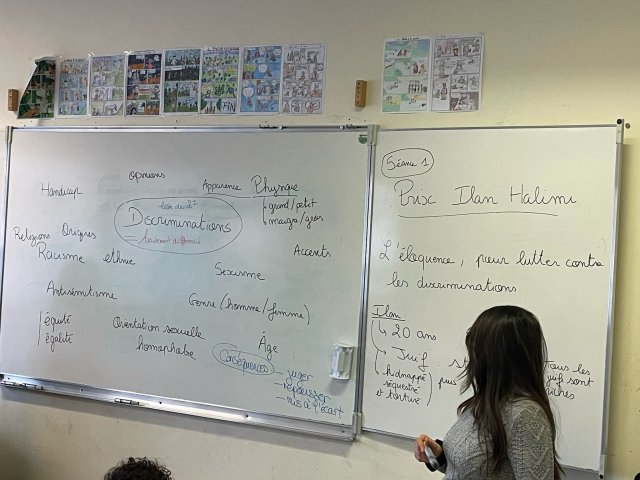 Handicap
opinions
Apparence Physique
grand/petit
maigre/gros
Discriminations
traitement différencié
Religions Origines
Racisme ethnie
Accents
Sexisme
Antisémitisme
Genre (homme/femme)
équité
égalité
Orientation sexuelle
homophobe
Âge
Conséquences
juger
repousser
mis à l'écart
FIN
Séance 1
Prix Ilan Halimi
L'éloquence, pour lutter contre
les discriminations
Ilan:
20 ans
Juif
kidnappé
séquestré
et torturé
puis
Tous les
juif sont
riches